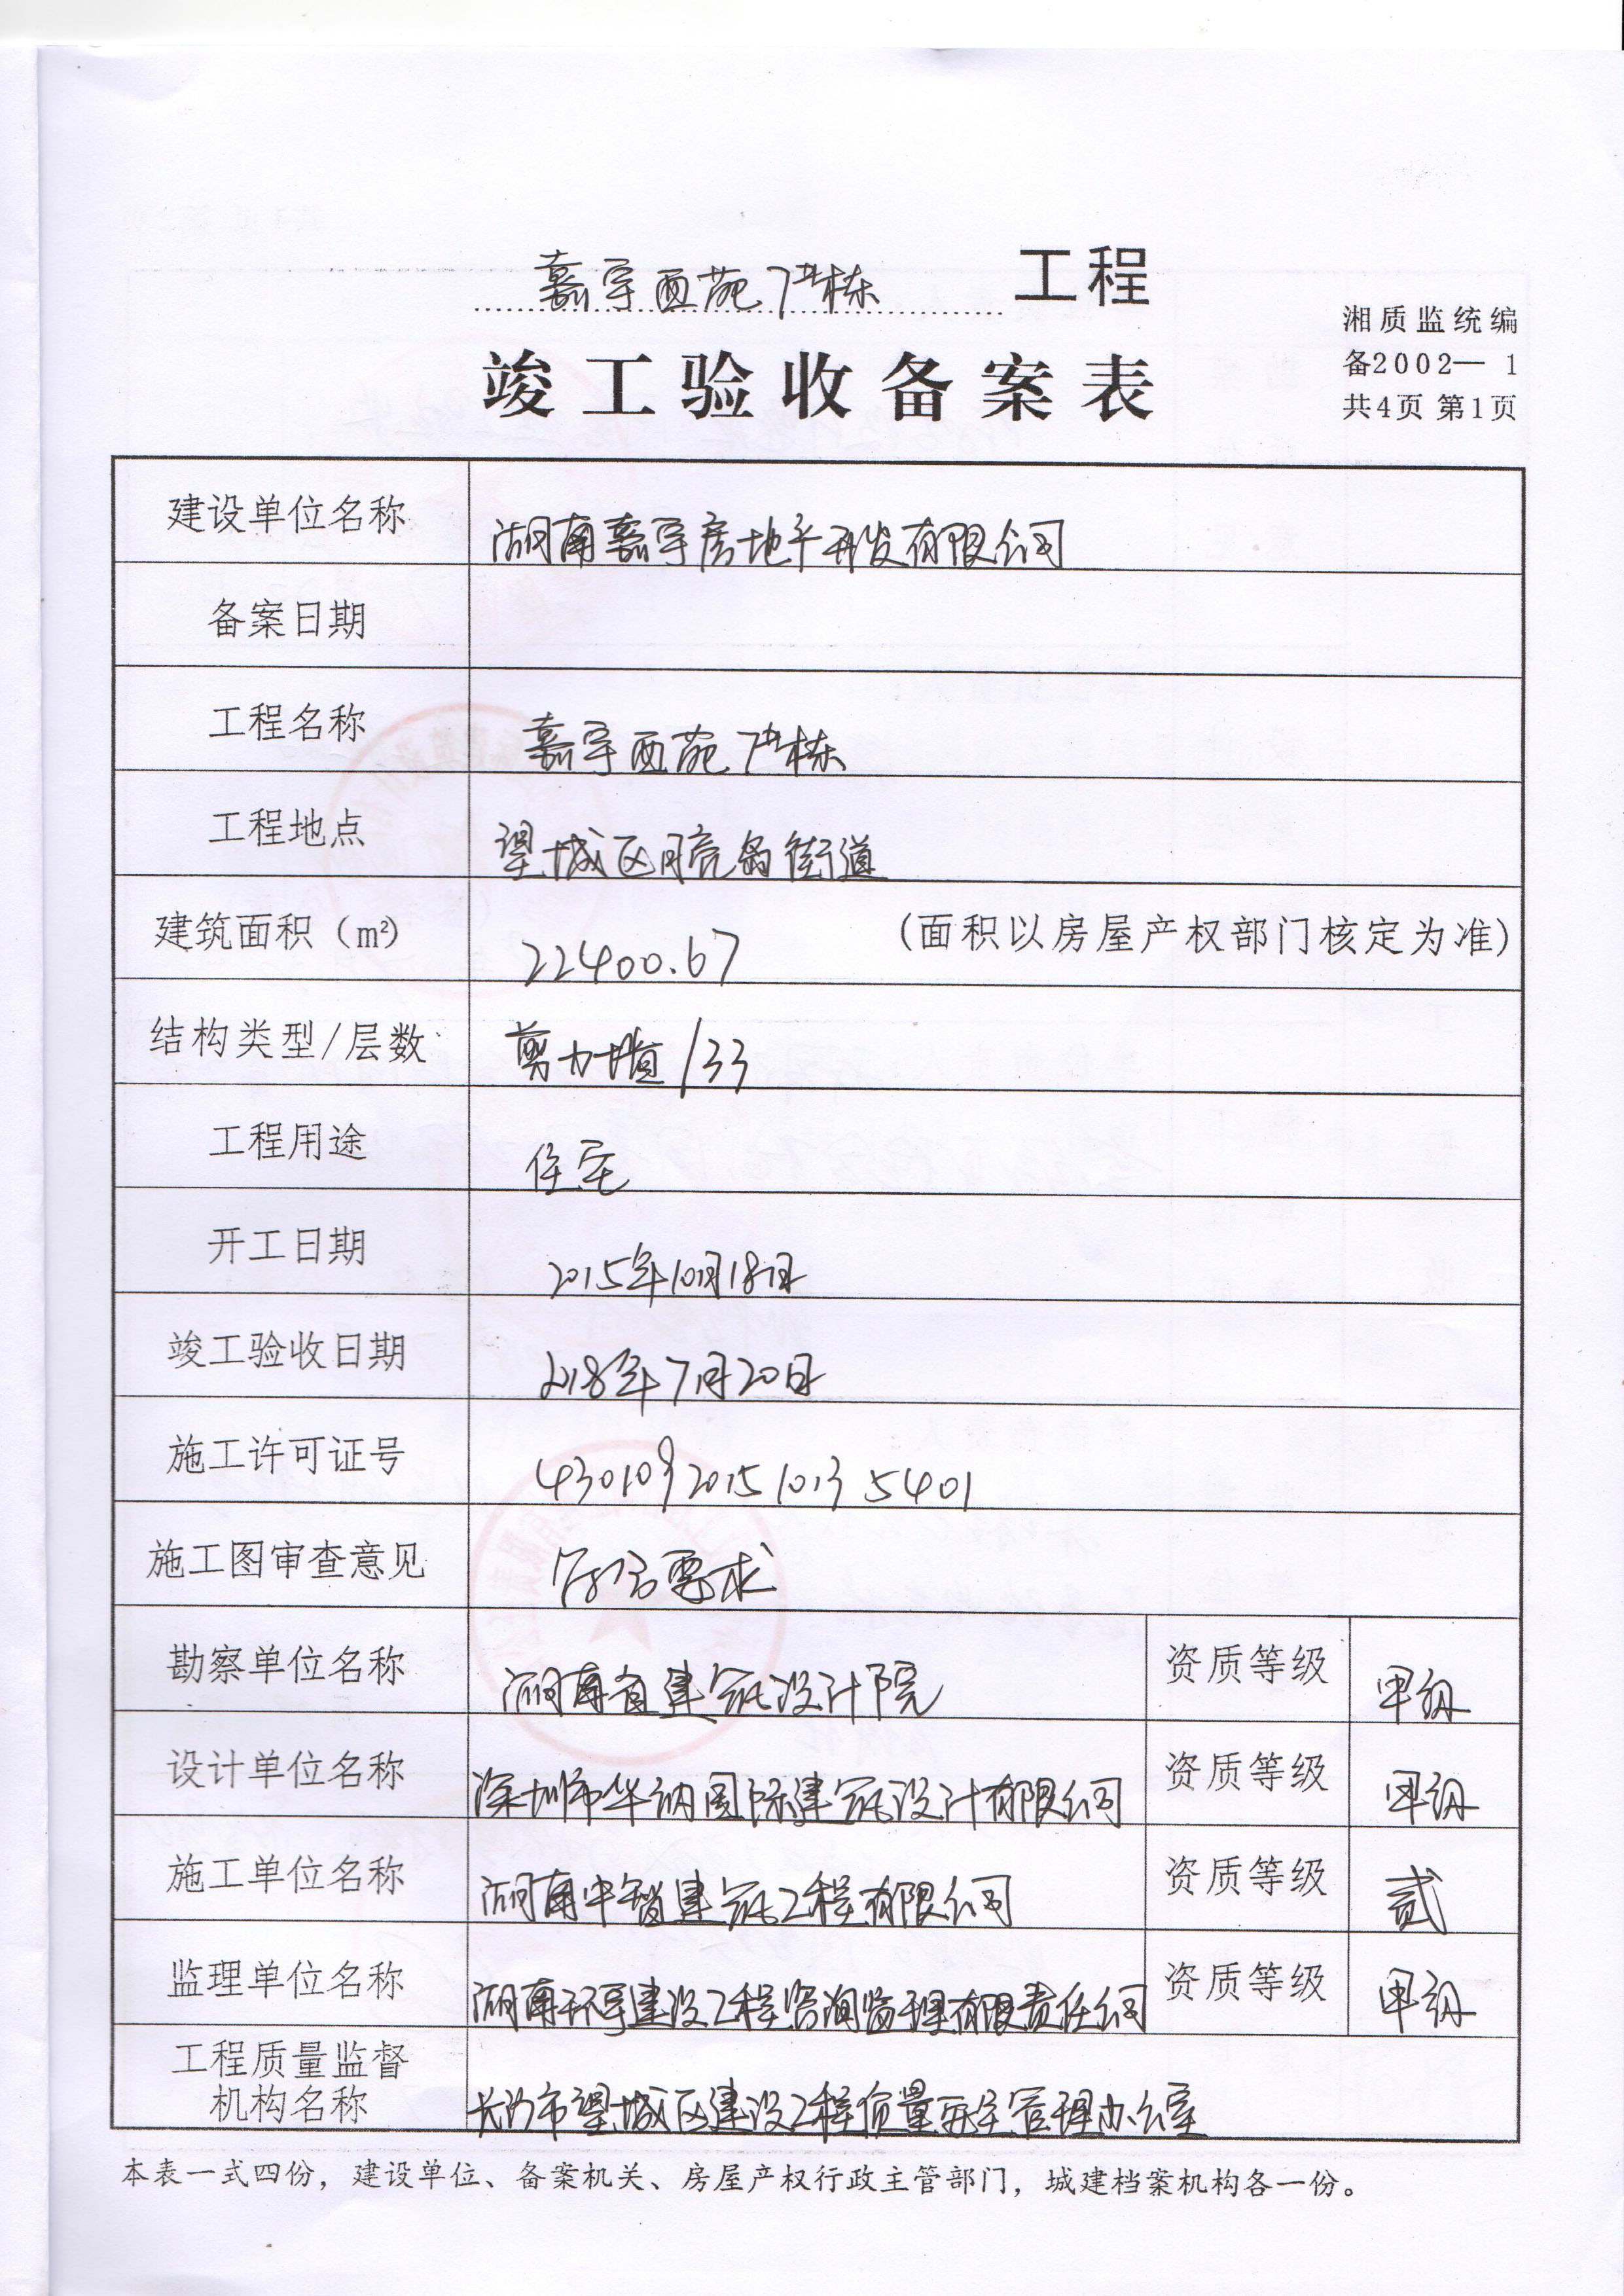 嘉宇西苑7#栋 工程
湘质监统编
竣工验收备案表
备2002— 1
共4页 第1页
建设单位名称 湖南嘉宇房地产开发有限公司
备案日期
工程名称 嘉宇西苑7#栋
工程地点 望城区月亮岛街道
建筑面积（m²） 22400.67 (面积以房屋产权部门核定为准)
结构类型/层数 剪力墙/33
工程用途 住宅
开工日期 2015年10月18日
竣工验收日期 2018年7月20日
施工许可证号 430109201510135401
施工图审查意见 符合要求
勘察单位名称 湖南省建筑设计院 资质等级 甲级
设计单位名称 深圳市华纳国际建筑设计有限公司 资质等级 甲级
施工单位名称 湖南中智建筑工程有限公司 资质等级 贰
监理单位名称 湖南环宇建设工程咨询监理有限责任公司 资质等级 甲级
工程质量监督
机构名称 长沙市望城区建设工程质量安全管理办公室
本表一式四份，建设单位、备案机关、房屋产权行政主管部门，城建档案机构各一份。